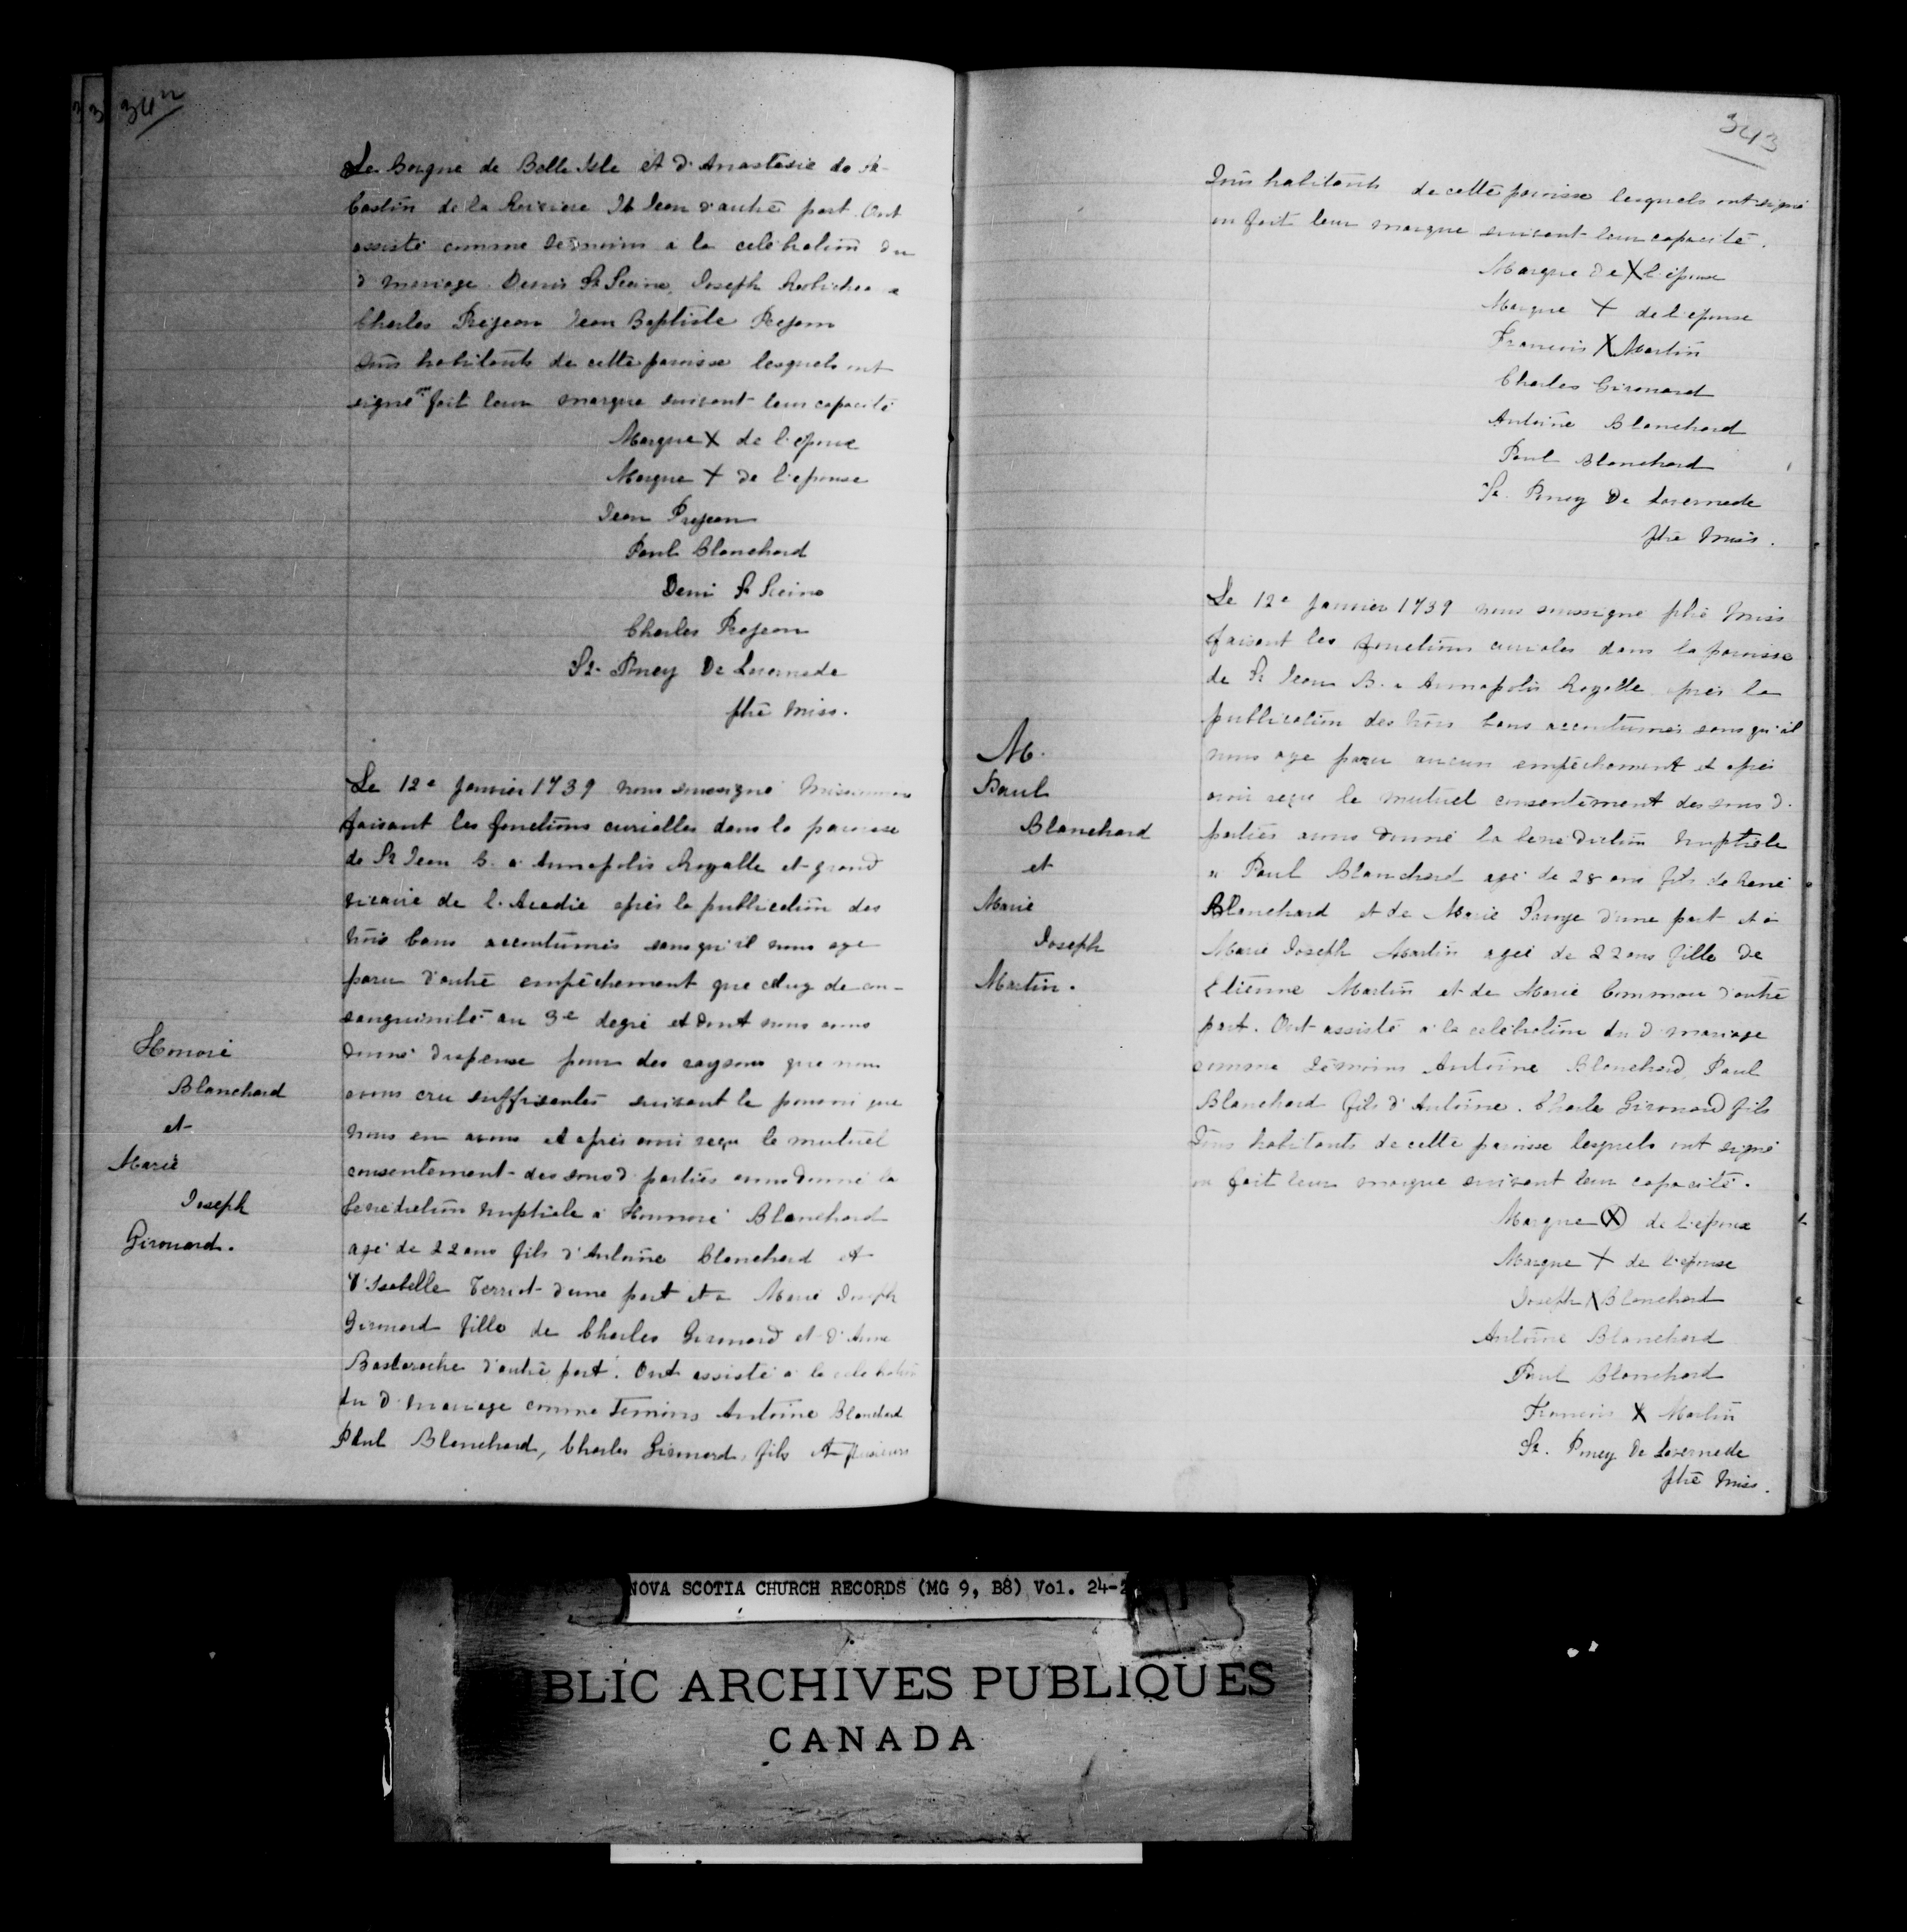 342
Le Borgne de Belle Isle et d'Anastasie de St
Castin de la Riviere St Jean d'autre part. Ont
assisté comme témoins a la celebration du
d mariage Denis St Sceine, Joseph Robichea
Charles Prejean Jean Baptiste Prejean
tous habitants de cette paroisse lesquels ont
signé ou fait leur marque suivant leur capacité
Marque X de l'epoux
Marque + de l'epouse
Jean Prejean
Paul Blanchard
Deni St Sceine
Charles Prejean
St. Poncy De Lavernede
ptre Miss.
Honoré
Blanchard
et
Marie
Joseph
Girouard.
Le 12e Janvier 1739 nous soussigné Missionnaire
faisant les fonctions curialles dans la paroisse
de St Jean B. a Annapolis Royalle et grand
vicaire de l'Acadie après la publication des
trois bans accoutumés sans qu'il nous aye
paru d'autre empêchement que celuy de con-
sanguinité au 3e degré et dont nous avons
donné dispense pour des raysons que nous
avons cru suffisantes suivant le pouvoir que
nous en avons et après avoir reçu le mutuel
consentement des sous d parties avons donné la
benediction nuptiale a Honnoré Blanchard
agé de 22 ans fils d'Antoine Blanchard et
d'Isabelle Terriot d'une part et a Marie Joseph
Girouard fille de Charles Girouard et d'Anne
Bastarache d'autre part. Ont assisté a la celebration
du d mariage comme temoins Antoine Blanchard
Paul Blanchard, Charles Girouard, fils et plusieurs
343
Tous habitants de cette paroisse lesquels ont signé
ou fait leur marque suivant leur capacité.
Marque de X l'epoux
Marque + de l'epouse
Francois X Martin
Charles Girouard
Antoine Blanchard
Paul Blanchard
St. Poncy De Lavernede
ptre Miss.
M.
Paul
Blanchard
et
Marie
Joseph
Martin.
Le 12e Janvier 1739 nous soussigné ptre Miss
faisant les fonctions curiales dans la paroisse
de St Jean B. a Annapolis Royalle après la
publication des trois bans accoutumés sans qu'il
nous aye paru aucun empêchement et après
avoir reçu le mutuel consentement des sous d.
parties avons donné la benediction nuptiale
a Paul Blanchard agé de 28 ans fils de René
Blanchard et de Marie d'une part et a
Marie Joseph Martin agée de 22 ans fille de
Etienne Martin et de Marie Commou d'autre
part. Ont assisté a la celebration du d mariage
comme témoins Antoine Blanchard, Paul
Blanchard fils d'Antoine. Charles Girouard fils
Tous habitants de cette paroisse lesquels ont signé
ou fait leur marque suivant leur capacité.
Marque (X) de l'epoux
Marque + de l'epouse
Joseph X Blanchard
Antoine Blanchard
Paul Blanchard
Francois X Martin
St. Poncy De Lavernede
ptre Miss.
NOVA SCOTIA CHURCH RECORDS (MG 9, B8) Vol. 24-2
BLIC ARCHIVES PUBLIQUES
CANADA